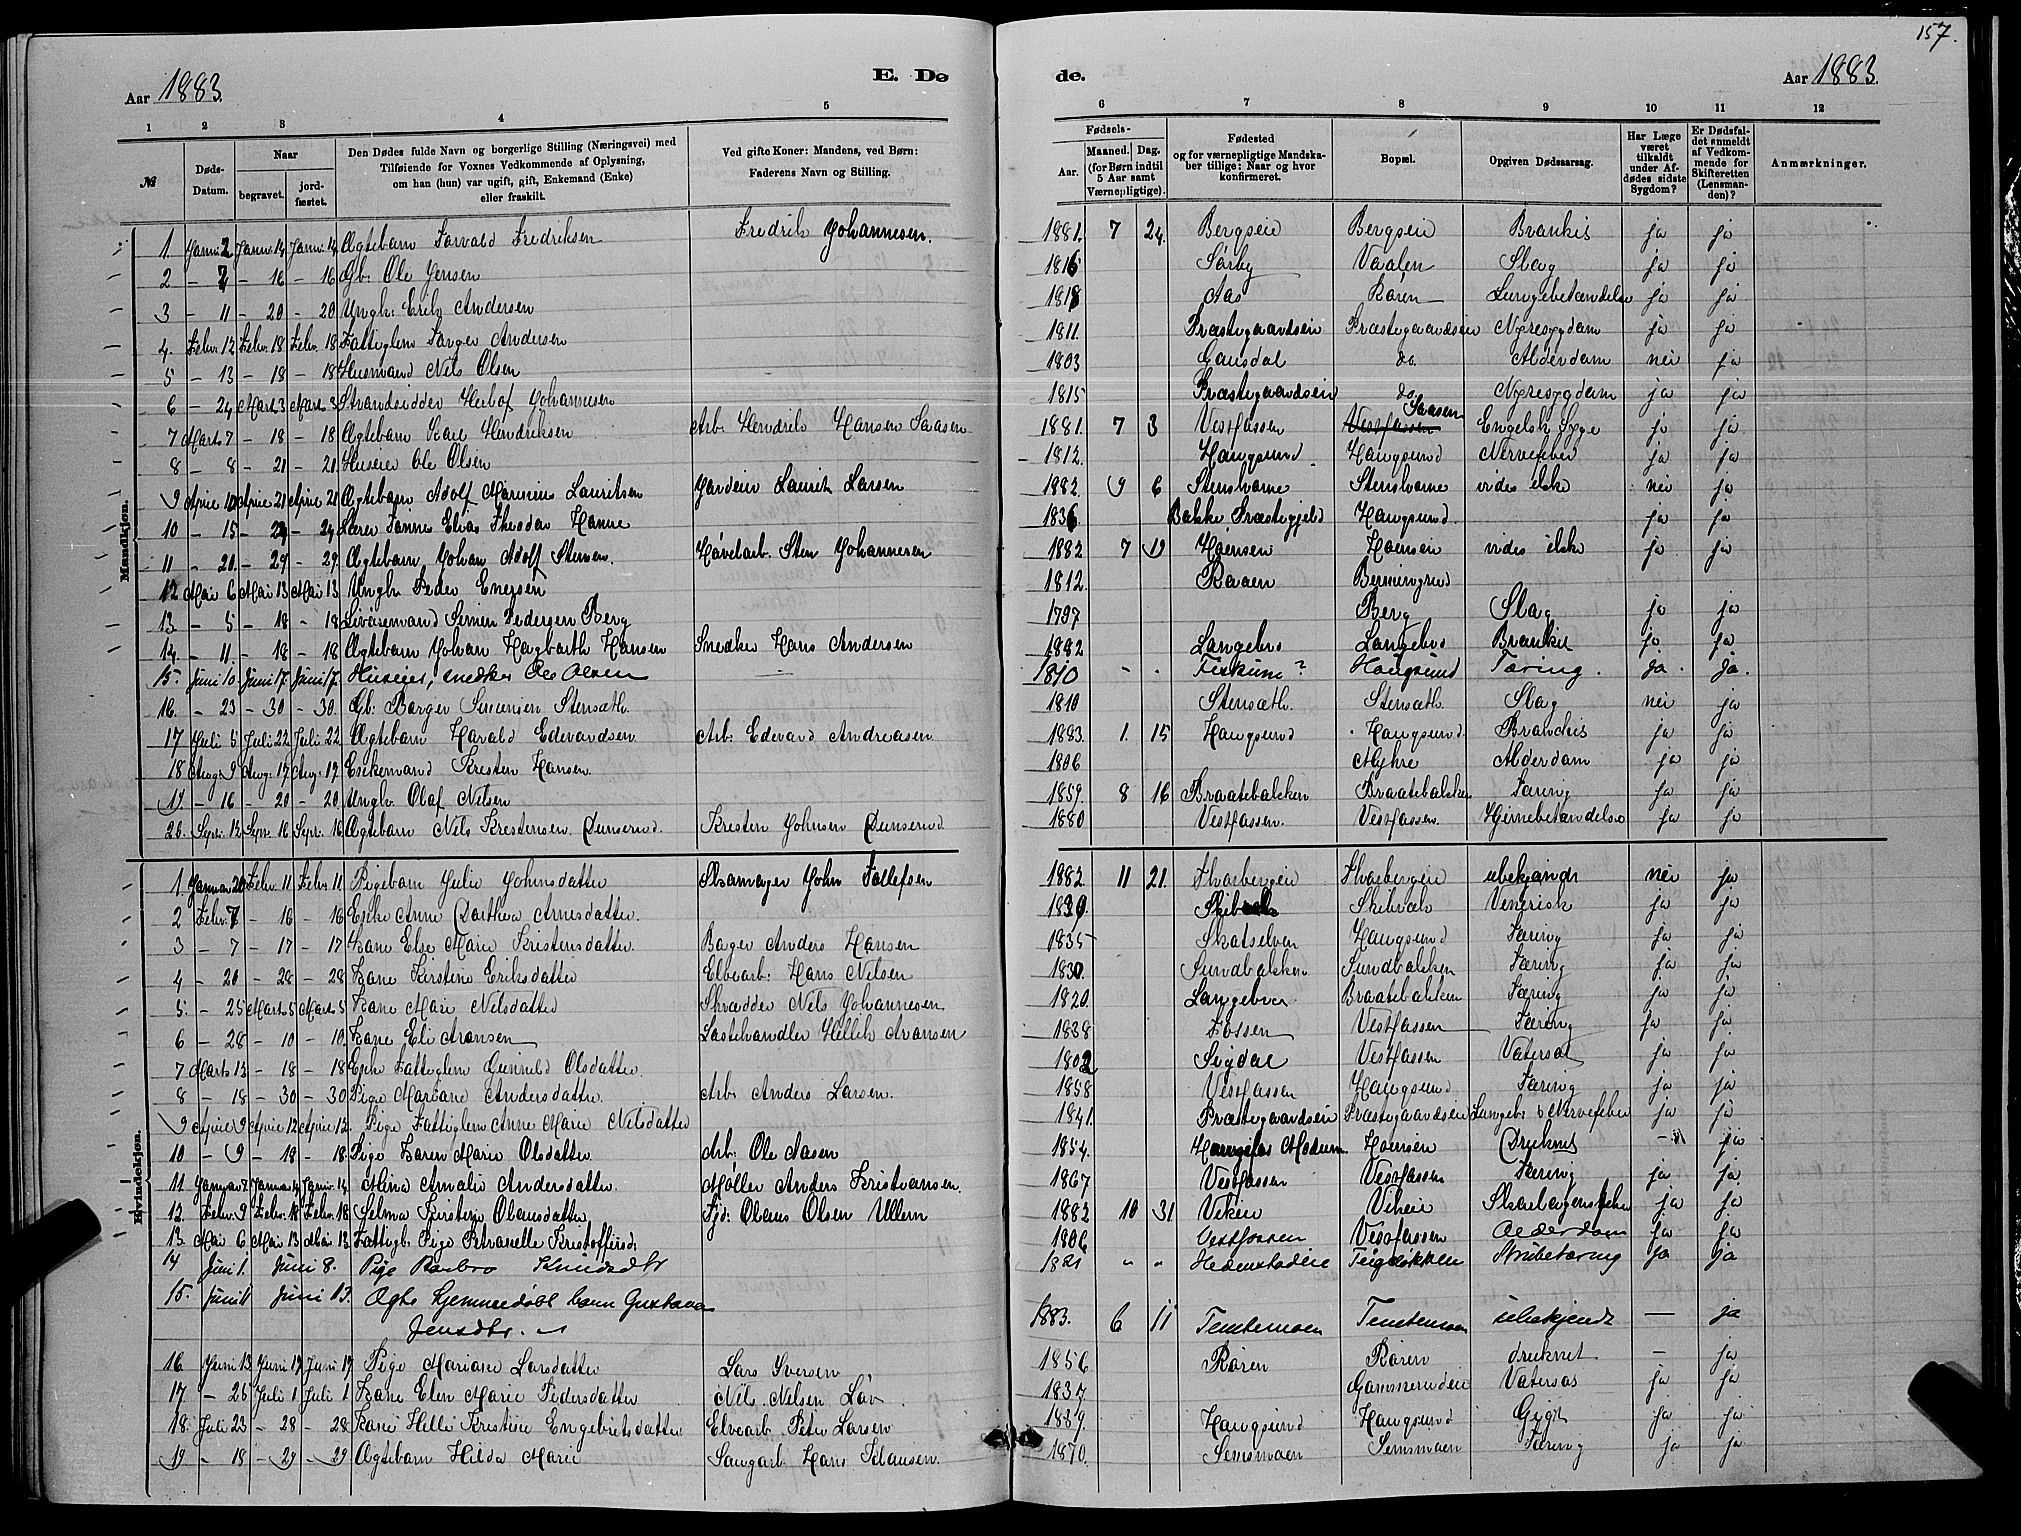 157.
Aar 1883. E. Dø
de. Aar 1883.
1 2 3 4 5
6 7 8 9 10 11 12
№ Døds-Datum. Naar begravet. jord-fæstet. Den Dødes fulde Navn og borgerlige Stilling (Næringsvei) med Tilføiende for Voxnes Vedkommende af Oplysning, om han (hun) var ugift, gift, Enkemand (Enke) eller fraskilt. Ved gifte Koner: Mandens, ved Børn: Faderens Navn og Stilling.
Fødsels- Aar. Maaned. Dag. (for Børn indtil 5 Aar samt Værnepligtige). Fødested og for værnepligtige Mandskaber tillige: Naar og hvor konfirmeret. Bopæl. Opgiven Dødsaarsag. Har Læge været tilkaldt under Afdødes sidste Sygdom? Er Dødsfaldet anmeldt af Vedkommende for Skifteretten (Lensmanden)? Anmærkninger.
Mandkjøn.
1. Januar 2 Januar 14 Januar 14 Ægtebarn Torvald Fredriksen Fredrik Johannesen. 1881. 7 24. Bergseie Bergseie Brankis ja ja
2 - 7 - 16 - 16 Gb: Ole Jensen 1816 Sørby Vaalen Slag ja ja
3 - 11 - 20 - 20 Ungk: Erik Andersen 1818 Aas Røren Lungebetændelse ja ja
4. Febr. 12 Febr. 18 Febr. 18 Fattiglem Torger Andersen 1811. Præstegaardseie Præstegaardseie Nyresygdom ja ja
5 - 13 - 18 - 18 Husmand Nils Olsen 1803 Gausdal do. Alderdom nei ja
6 - 24 Marts 3 Marts 3 Strandsidder Johannesen 1815 Præstegaardseie do Nyresygdom ja ja
7 Marts 7 - 18 - 18 Ægtebarn Hendriksen Arb: Hendrik Hansen Saasen 1881. 7 3 Vestfossen Saasen Engelsk Syge ja ja
8 - 8 - 21 - 21. Huseier Ole Olsen 1812. Haugsund Haugsund Nervefeber ja ja
9 April 10 April 21 April 21 Ægtebarn Adolf Marinius Lauritsen Gardeier Laurits Larsen 1882. 9 6 Stenshorne Stenshorne vides ikke nei ja
10 - 15 - 24 - 24 Lærer Tønnes Elias Theodor Hanne 1836. Bakke Præstegjeld Haugsund. ja ja
11 - 20. - 29 - 29. Ægtebarn Johan Adolf Stensen. Høvelarb. Sten Johannesen 1882 7 19 Hoensen Hoenseie vides ikke ja ja
12 Mai 6 Mai 13 Mai 13 Ungk. Peder Enersen 1812. Raaen
13 - 5 - 18 - 18 Simen Pedersen Berg 1797 Berg Slag ja ja
14 - 11. - 18 - 18 Ægtebarn Johan Hagbarth Hansen Snedker Hans Andersen 1882 Langebro Langebro Brankit ja. ja.
15 Juni 10. Juni 17. Juni 17. Huseier, snedker Ole Olsen — 1810 - - Fiskum? Haugsund Tæring. Ja. Ja.
16. - 23 - 30 - 30. Gb: Børger Simensen Stensæth. 1810 Stensæth. Stensæth. Slag nei ja
17 Juli 5 Juli 22 Juli 22 Ægtebarn Harald Edvardsen Arb: Edvard Andreasen 1883. 1. 15 Haugsund Haugsund. Bronchis ja ja
18 Aug. 9 Aug. 17 Aug. 17 Enkemand Kristen Hansen. 1806 Myhre Alderdom ja ja
19. - 16 - 20 - 20 Ungk. Olaf Nilsen 1859. 8 16 Braatebakken Braatebakken Tæring ja ja
20. Sept. 12 Sept. 16 Sept. 16 Ægtebarn Nils Kristensen Dunserud. Kristen Johnsen Dunserud. 1880 Vestfossen. Vestfossen. Hjernebetændelse ja ja
Kvindekjøn.
1. Januar 20 Febr. 11 Febr. 11 Pigebarn Julie Johnsdatter Skomager John Tollefsen 1882. 11 21. ubekjendt nei ja
2 Febr. 7 - 16 - 16 Enke Anne Dorthea Arnesdatter. 1839. Skibræk Venerisk ja ja
3 - 7 - 17 - 17 Kone Else Marie Kristensdatter. Bager Anders Hansen 1835 Skotselven Haugsund Tæring ja ja
4 - 20 - 28 - 28 Kone Kirstine Eriksdatter Elvearb. Hans Nilsen 1830. Sundbakken Sundbakken Tæring ja ja
5. - 25 Marts 5 Marts 5 Kone Marie Nilsdatter Skrædder Nils Johannesen 1820. Langebroen Braatebakken Tæring ja ja
6 - 28 - 10 - 10. Kone Eli Aronsen Aronsen 1838 Fossen Vestfossen Tæring ja ja
7 Marts 13 - 18 - 18 Enke Fattiglem Gunnild Olsdatter. 1802 Sigdal Vestfossen Vatersot ja ja
8 - 18 - 30 - 30 Pige Mariane Andersdatter. Arb: Anders Larsen. 1858 Vestfossen Haugsund Tæring ja ja
9 April 9 April 12 April 12. Pige Fattiglem Anne Marie Nilsdatter 1841. Præstegaardseie Præstegaardseie Lungeb: & Nervefeber ja ja
10 - 9 - 18 - 18. Pige Karen Marie Olsdatter. Arb: Ole Aasen 1854. Modum. Hoenseie Druknet — ja
11 Januar 7. Januar 14 Januar 14 Alina Amalie Andersdatter. Møller Anders Kristiansen. 1867 Vestfossen Vestfossen Tæring ja ja
12. Febr. 9 Febr. 18 Febr. 18 Selma Kirstine Olausdatter Olaus Olsen Ullern 1882 10 31. Vikeie Vikeie Skarlagensfeber ja ja
13 Mai 6 Mai 13 Mai 13 Fattigl. Pige Petronelle Kristoffersd. 1806 Vestfossen Vestfossen Alderdom ja ja
14 Juni 1. Juni 8. Pige Barbro Knudsdtr 1821 " " Hedenstadeie Teigeløkken Strubetæring ja ja
15. Juni 11 Juni 13. Ægte hjemmedøbt barn Gustava
Jensdtr. 1883. 6 11 Tentemoen Tentemoen ubekjendt — ja
16. Juni 13 Juni 17 Juni 17 Pige Mariane Larsdatter Lars Iversen 1856. Røren Røren druknet — ja
17. - 25 Juli 1 Juli 1 Kone Elen Marie Pedersdatter Nils Nilsen Løv 1837. Gommerudeie Vatersot ja ja
18. Juli 23 - 28 - 28 Kone Helle Kristine Engebretsdatter Elvearb Peter Larsen 1839. Haugsund Haugsund Gigt ja ja
19. - 18 - 29 - 29 Ægtebarn Hilda Marie Saugarb. Hans Klausen. 1870. Semsmoen Semsmoen Tæring ja ja